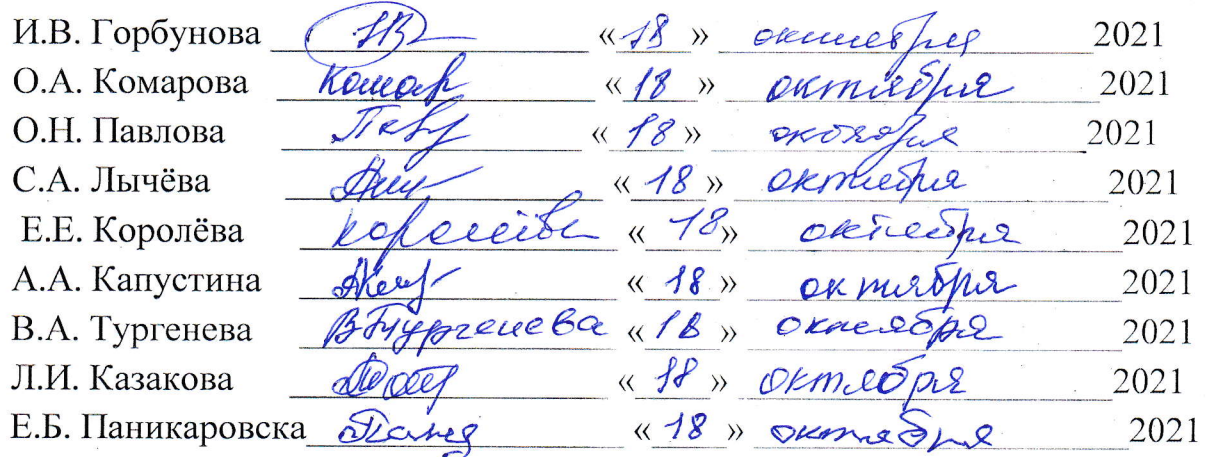 И.В. Горбунова «18» октября 2021
О.А. Комарова Комар «18» октября 2021
О.Н. Павлова Павл «18» октября 2021
С.А. Лычёва «18» октября 2021
Е.Е. Королёва Королёва «18» октября 2021
А.А. Капустина «18» октября 2021
В.А. Тургенева ВТургенева «18» октября 2021
Л.И. Казакова «18» октября 2021
Е.Б. Паникаровска «18» октября 2021